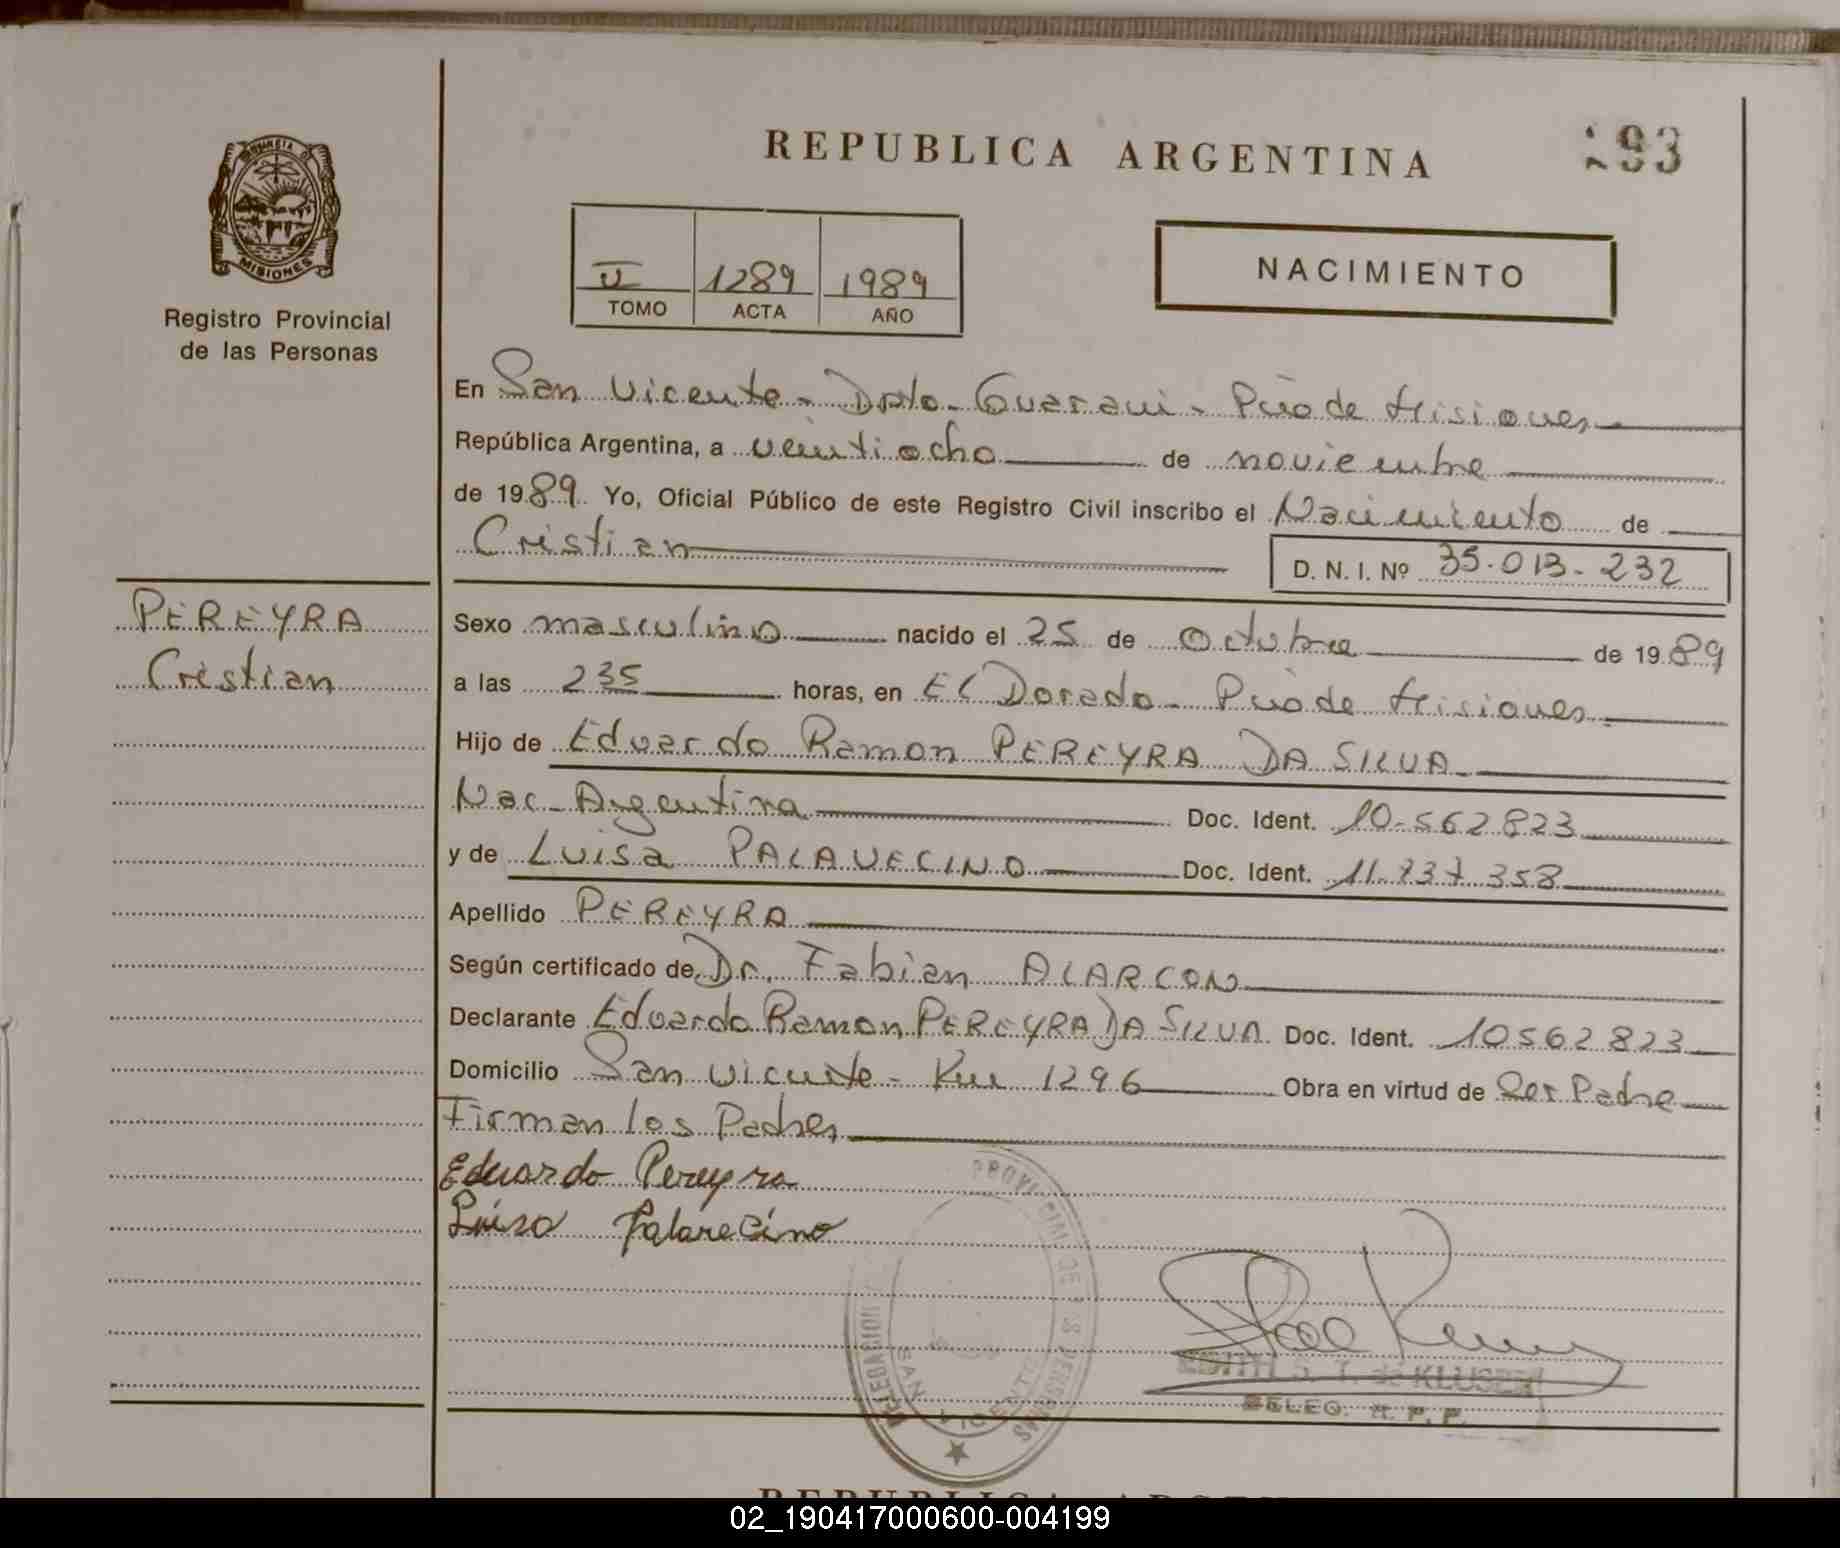 REPUBLICA ARGENTINA
293
PROVINCIA D MISIONES
Registro Provincial
de las Personas
U 1289 1989
TOMO ACTA AÑO
NACIMIENTO
En San Vicente - Dpto - Guarani - Pcia de Misiones
República Argentina, a veintiocho de noviembre
de 1989 Yo, Oficial Público de este Registro Civil inscribo el Nacimiento de
Cristian D. N. I. Nº 35.013.232
PEREYRA
Cristian
Sexo masculino nacido el 25 de octubre de 1989
a las 235 horas, en El Dorado - Pcia de Misiones
Hijo de Eduardo Ramon PEREYRA DA SILVA
Nac - Argentina Doc. Ident. 10.562.823
y de Luisa PALAVECINO Doc. Ident. 11.737.358
Apellido PEREYRA
Según certificado de Dr. Fabian ALARCON
Declarante Eduardo Ramon PEREYRA DA SILVA Doc. Ident. 10562823
Domicilio San Vicente - Km 1296 Obra en virtud de Ser Padre
Firman los Padres
Eduardo Pereyra
Luisa Palavecino
DELEGACION PROVINCIAL DE LAS PERSONAS
SAN VICENTE
EDITH S. T. de KLUSENER
DELEG. R. P. P.
REPUBLICA ARGENTINA
02_190417000600-004199